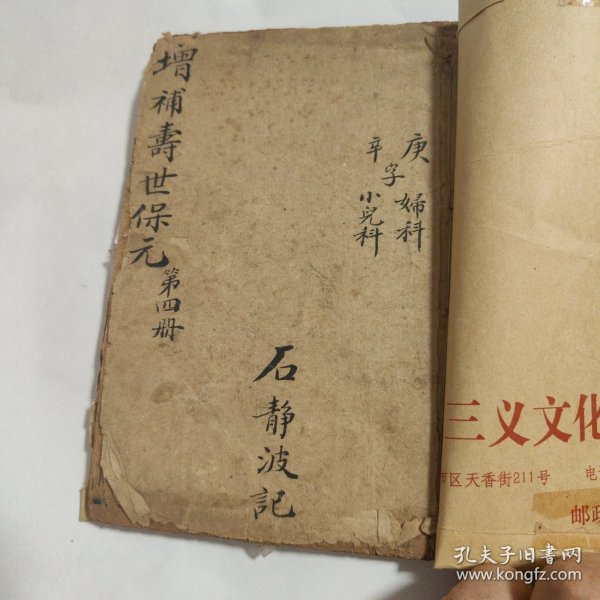 增補壽世保元
第四册
庚 婦科
字
辛 小兒科
石靜波記
三义文化
市区天香街211号
电
邮政
孔夫子旧书网
www.kongfz.com